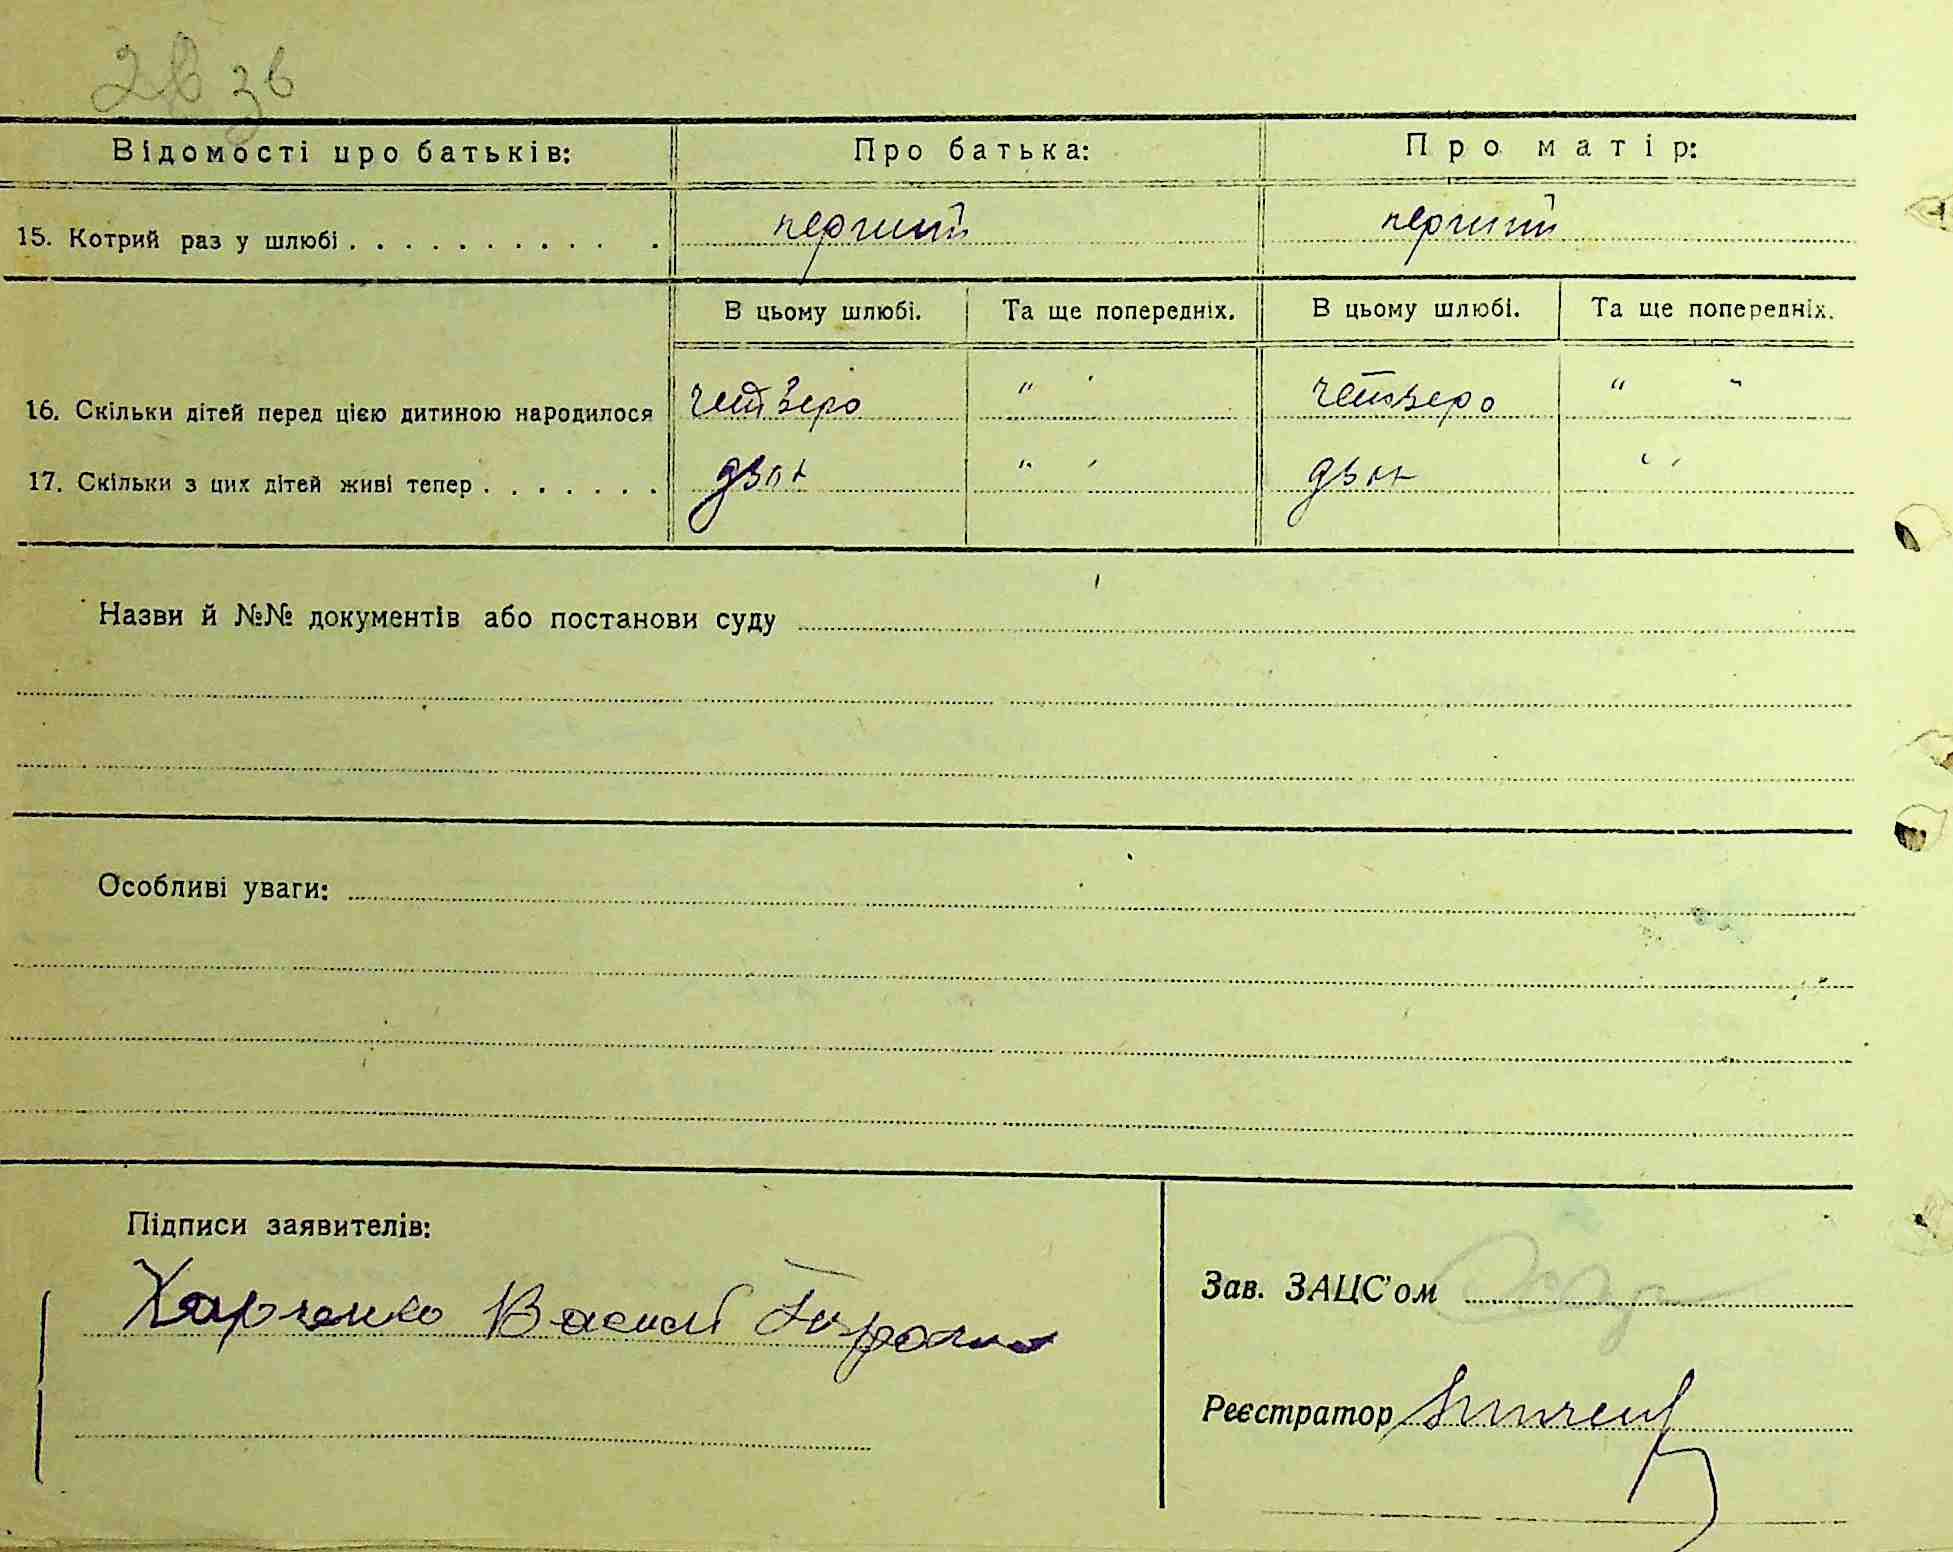 2в зв
Відомості про батьків: Про батька: Про матір:
15. Котрий раз у шлюбі . . . . . . . . . . . . перший перший
В цьому шлюбі. Та ще попередніх. В цьому шлюбі. Та ще попередніх.
16. Скільки дітей перед цією дитиною народилося четверо " " четверо " "
17. Скільки з цих дітей живі тепер . . . . . . . двоє " " двоє " "
Назви й №№ документів або постанови суду
Особливі уваги:
Підписи заявителів:
Харченко Василь
Зав. ЗАЦС'ом
Реєстратор